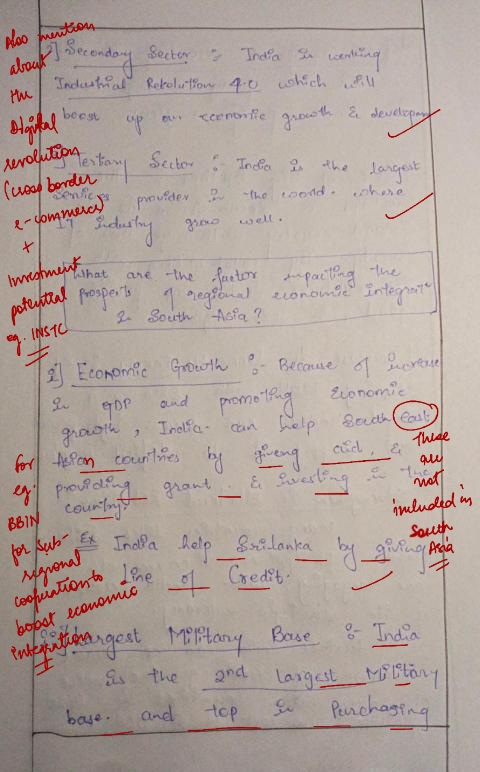 Also mention
about
the
Digital
revolution
(cross border
e-commerce)
+
Investment
potential
eg. INSTC
i] Secondary Sector :- India is working
Industrial Revolution 4.0 which will
boost up our economic growth &
] Tertiary Sector :- India is the largest
services provider in the world. where
IT industry grow well.
What are the factor impacting the
prospects of regional economic
in South Asia?
i] Economic Growth :- Because of increase
in GDP and promoting Economic
growth, India can help South East
Asian countries by giveng aid, &
providing grant & investing in the
country.
Ex India help Srilanka by giving
Line of Credit.
Largest Military Base :- India
is the 2nd largest Military
base. and top in Purchasing
These
are
not
included in
South
Asia
For
eg.
BBIN
for Sub-
regional
cooperation to
boost economic
integration